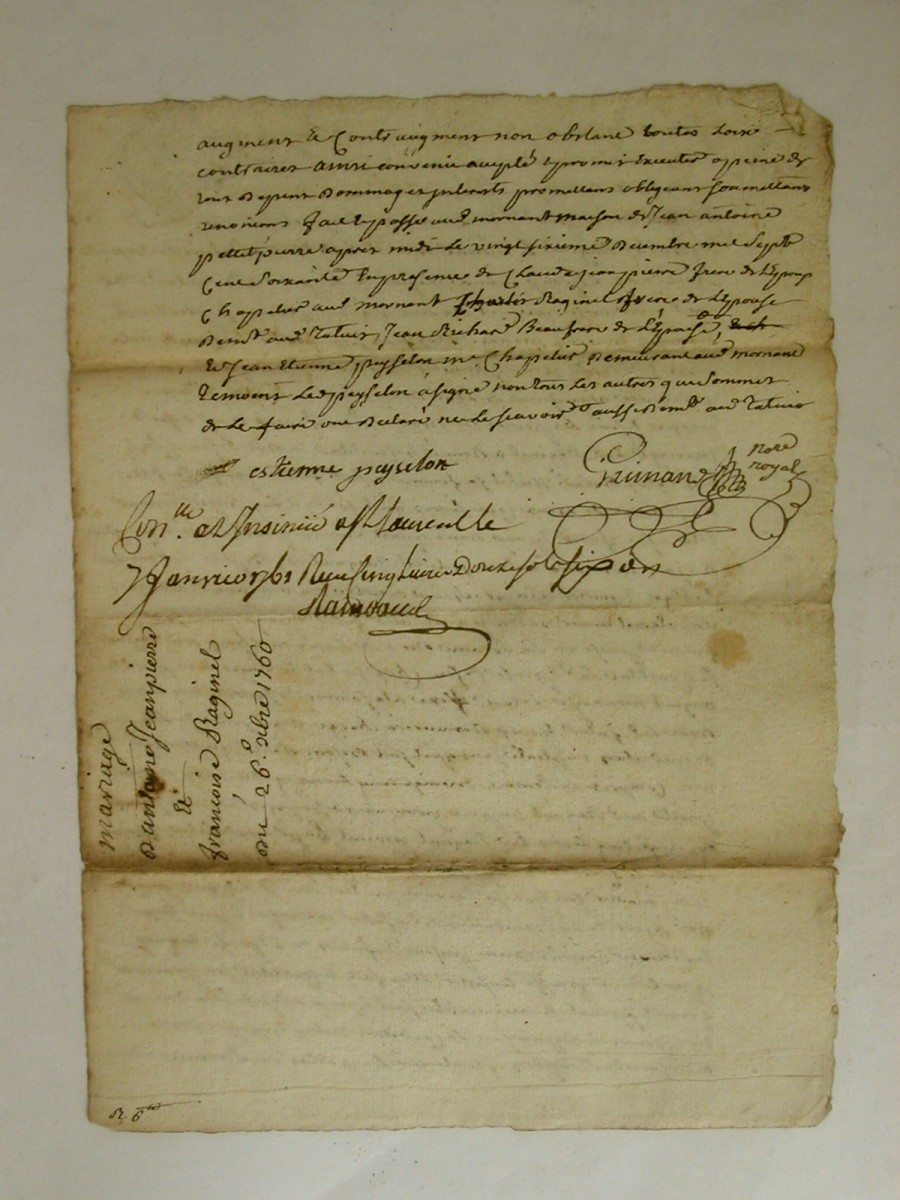 augment et Contraugment non obstant toutes Loix
contraires ainsi convenu accepté & promis executer a peine de
tous Depens Dommages interests promettans obligeans soumettans
renoncans fait & passé aud mornant maison de Jean antoine
petit pierre apres midi Le vingt sixieme Decembre mil Sept
Cent Soixante En presence de Claude jeanpierre frere de L'Epoux
Chapelier aud mornant Raginel frere de L'Epouse
Demt aud Jean Richard Beaufrere de L'Epouse,
& Jean Etienne peyselon me Chapelier Demeurant aud mornant
temoins Led peyselon à signé non tous Les autres qui Sommés
de Le faire ont Declaré ne Le scavoir aussi Demt aud
estienne peyselon
notre
royal
Conlle et Insinué a
7 Janvier 1761 Reçu Cinq Livres Douze sols six den
mariage
D'antoine Jeanpierre
Et
françoise Raginel
Du 26e xbre 1760